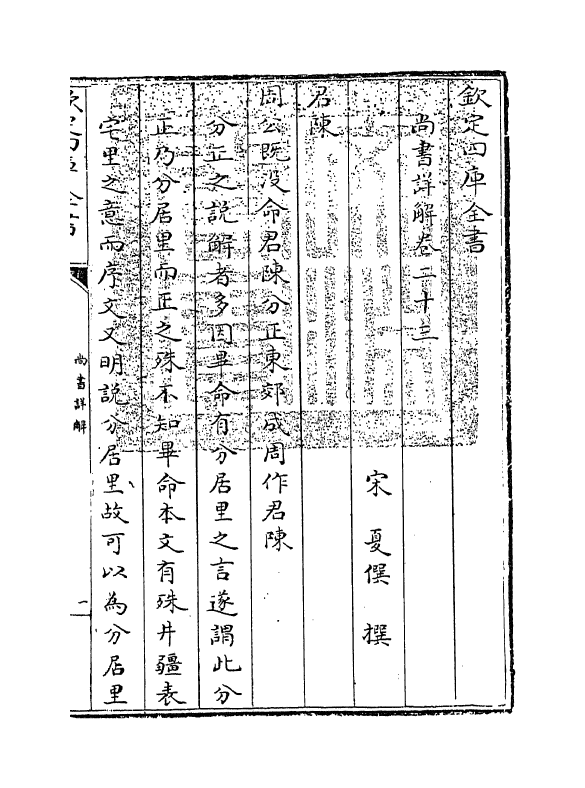 欽定四庫全書
尚書詳解卷二十三
宋　夏僎　撰
君陳
周公既没命君陳分正東郊成周作君陳
分正之説解者多因畢命有分居里之言遂謂此分
正乃分居里而正之殊不知畢命本文有殊井疆表
宅里之意而序文又明説分居里故可以為分居里
欽定四庫全書
尚書詳解
一